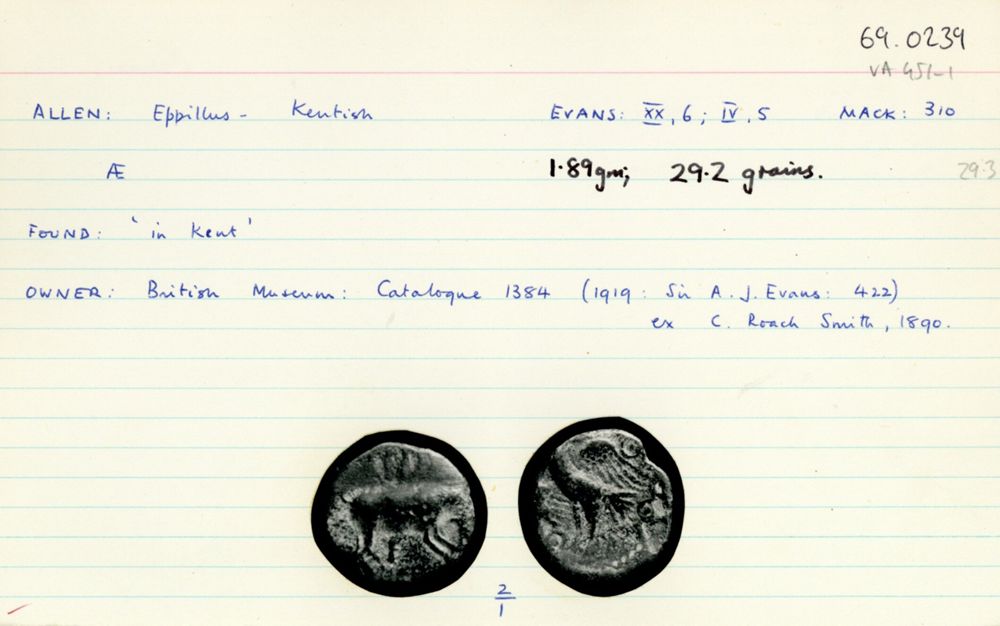 69.0239
VA 451-1
ALLEN: Eppillus - Kentish EVANS: XX, 6; IV, 5 MACK: 310
Æ 1.89gm; 29.2 grains. 29.3
FOUND: 'in Kent'
OWNER: British Museum: Catalogue 1384 (1919: Sir A. J. Evans: 422)
ex C. Roach Smith, 1890.
2
1